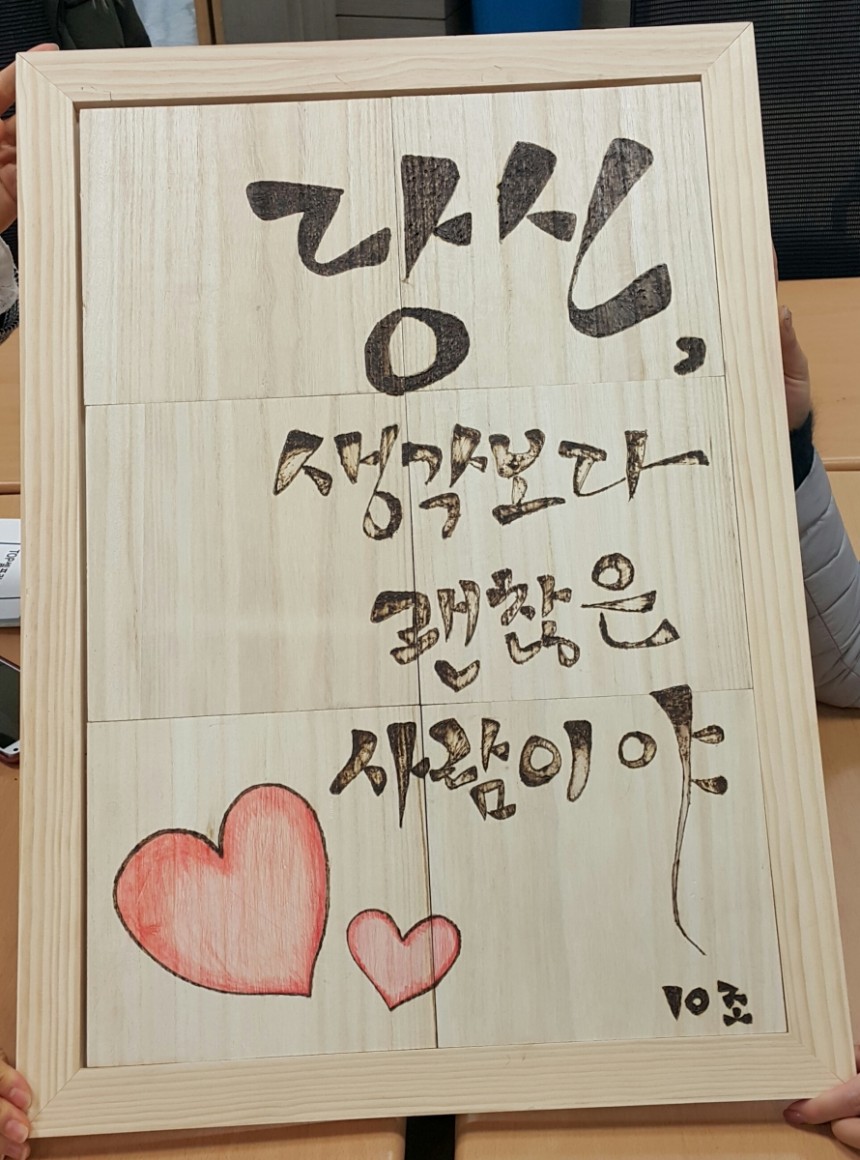 당신,
생각보다
괜찮은
사람이야
10조